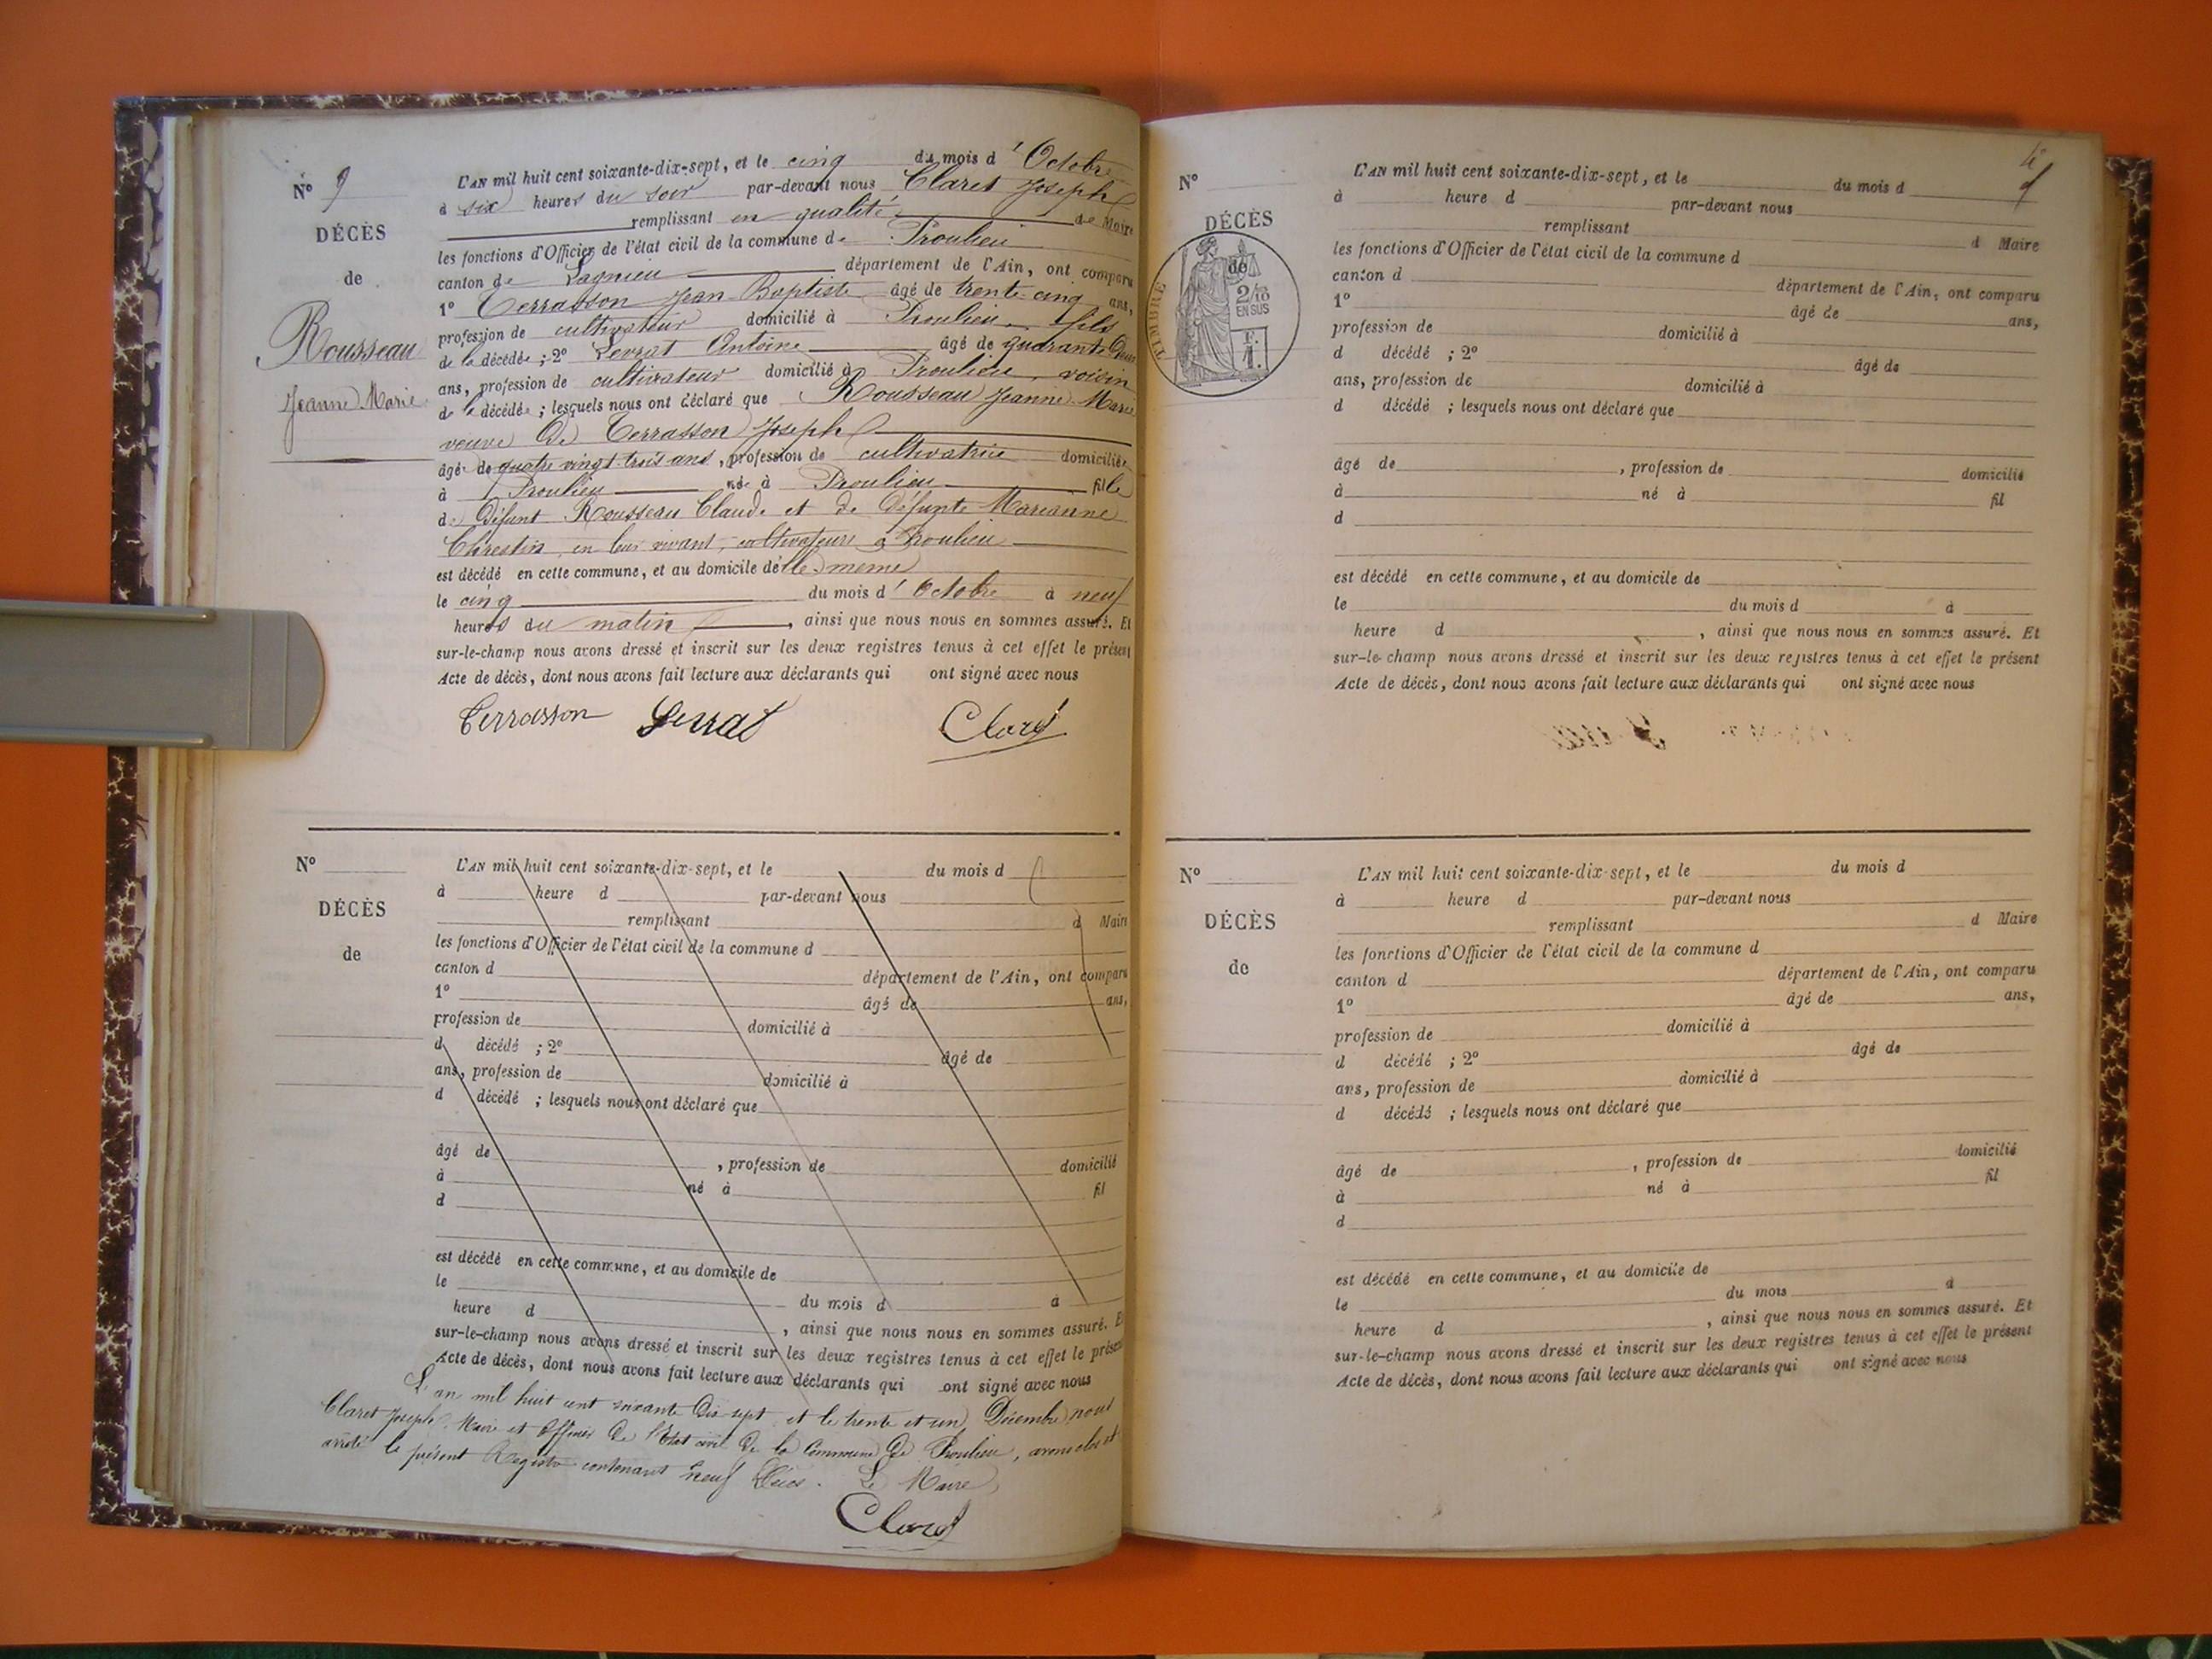 N° 9
DÉCÈS
de
Rousseau
Jeanne Marie
L'AN mil huit cent soixante-dix-sept, et le cinq du mois d'Octobre
à six heures du soir par-devant nous Claret Joseph
remplissant en qualité de Maire
les fonctions d'Officier de l'état civil de la commune de Proulieu
canton de Lagnieu département de l'Ain, ont comparu
1° Terrasson Jean Baptiste âgé de trente-cinq ans,
profession de cultivateur domicilié à Proulieu fils
de la décédée ; 2° Serrat Antoine âgé de quarante deux
ans, profession de cultivateur domicilié à Proulieu, voisin
de la décédée ; lesquels nous ont déclaré que Rousseau Jeanne Marie
veuve de Terrasson Joseph
âgée de quatre vingt trois ans, profession de cultivatrice domiciliée
à Proulieu née à Proulieu fille
de Défunt Rousseau Claude et de Défunte Marianne
Chrestin, en leur vivant, cultivateurs à Proulieu
est décédé en cette commune, et au domicile d'elle même
le cinq du mois d'Octobre à neuf
heures du matin, ainsi que nous nous en sommes assuré. Et
sur-le-champ nous avons dressé et inscrit sur les deux registres tenus à cet effet le présent
Acte de décès, dont nous avons fait lecture aux déclarants qui ont signé avec nous
Terrasson Serrat Claret
N°
DÉCÈS
de
L'AN mil huit cent soixante-dix-sept, et le du mois d
à heure d par-devant nous
remplissant d Maire
les fonctions d'Officier de l'état civil de la commune d
canton d département de l'Ain, ont comparu
1° âgé de ans,
profession de domicilié à
d décédé ; 2° âgé de
ans, profession de domicilié à
d décédé ; lesquels nous ont déclaré que
âgé de , profession de domicilié
à né à fil
d
est décédé en cette commune, et au domicile de
le du mois d à
heure d , ainsi que nous nous en sommes assuré. Et
sur-le-champ nous avons dressé et inscrit sur les deux registres tenus à cet effet le présent
Acte de décès, dont nous avons fait lecture aux déclarants qui ont signé avec nous
L'an mil huit cent soixante Dix sept et le trente et un Décembre nous
Claret Joseph Maire et Officier de l'Etat civil de la Commune de Proulieu, avons clos et
arrêté le présent Registre contenant neuf Décès. Le Maire
Claret
N°
DÉCÈS
de
TIMBRE
2/10
EN SUS
F.
1.
L'AN mil huit cent soixante-dix-sept, et le du mois d
à heure d par-devant nous
remplissant d Maire
les fonctions d'Officier de l'état civil de la commune d
canton d département de l'Ain, ont comparu
1° âgé de ans,
profession de domicilié à
d décédé ; 2° âgé de
ans, profession de domicilié à
d décédé ; lesquels nous ont déclaré que
âgé de , profession de domicilié
à né à fil
d
est décédé en cette commune, et au domicile de
le du mois d à
heure d , ainsi que nous nous en sommes assuré. Et
sur-le-champ nous avons dressé et inscrit sur les deux registres tenus à cet effet le présent
Acte de décès, dont nous avons fait lecture aux déclarants qui ont signé avec nous
N°
DÉCÈS
de
L'AN mil huit cent soixante-dix-sept, et le du mois d
à heure d par-devant nous
remplissant d Maire
les fonctions d'Officier de l'état civil de la commune d
canton d département de l'Ain, ont comparu
1° âgé de ans,
profession de domicilié à
d décédé ; 2° âgé de
ans, profession de domicilié à
d décédé ; lesquels nous ont déclaré que
âgé de , profession de domicilié
à né à fil
d
est décédé en cette commune, et au domicile de
le du mois à
heure d , ainsi que nous nous en sommes assuré. Et
sur-le-champ nous avons dressé et inscrit sur les deux registres tenus à cet effet le présent
Acte de décès, dont nous avons fait lecture aux déclarants qui ont signé avec nous